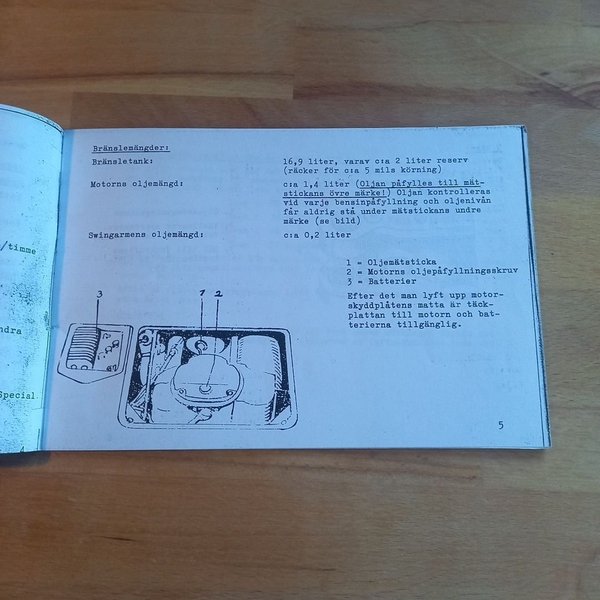 /timme
ndra
Special
Bränslemängder:
Bränsletank: 16,9 liter, varav c:a 2 liter reserv
(räcker för c:a 5 mils körning)
Motorns oljemängd: c:a 1,4 liter (Oljan påfylles till mät-
stickans övre märke!) Oljan kontrolleras
vid varje bensinpåfyllning och oljenivån
får aldrig stå under mätstickans undre
märke (se bild)
Swingarmens oljemängd: c:a 0,2 liter
1 = Oljemätsticka
2 = Motorns oljepåfyllningsskruv
3 = Batterier
Efter det man lyft upp motor-
skyddplåtens matta är täck-
plattan till motorn och bat-
terierna tillgänglig.
3 1 2
5